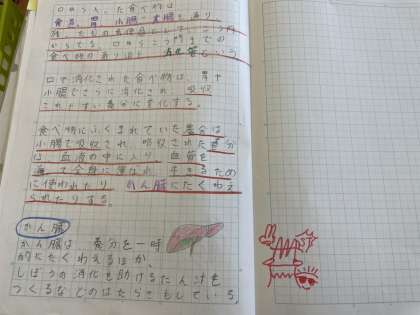 口から入った食べ物は
食道、胃、小腸、大腸を通り
からでる。口からこう門までの
食べ物の通り道を消化管という
口で消化された食べ物は、胃や
小腸でさらに消化され、吸収
されやすい養分に変化する。
食べ物にふくまれていた養分は
小腸で吸収され、吸収された養分
は、血液の中に入り、血管を
通って全身に運ばれ、生きるため
に使われたり、かん臓にたくわえ
られたりする。
かん臓
かん臓は、養分を一時
的にたくわえるほか、
しぼうの消化を助けるたん汁を
つくるなどのはたらきもしている